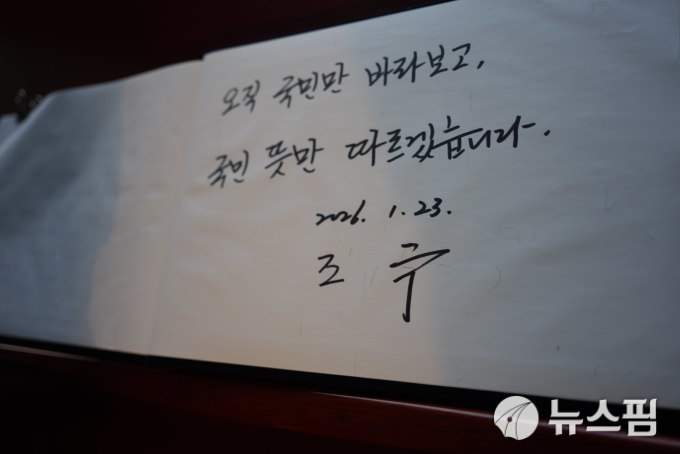 오직 국민만 바라보고,
국민 뜻만 따르겠습니다.
2026. 1. 23.
조 국
뉴스핌